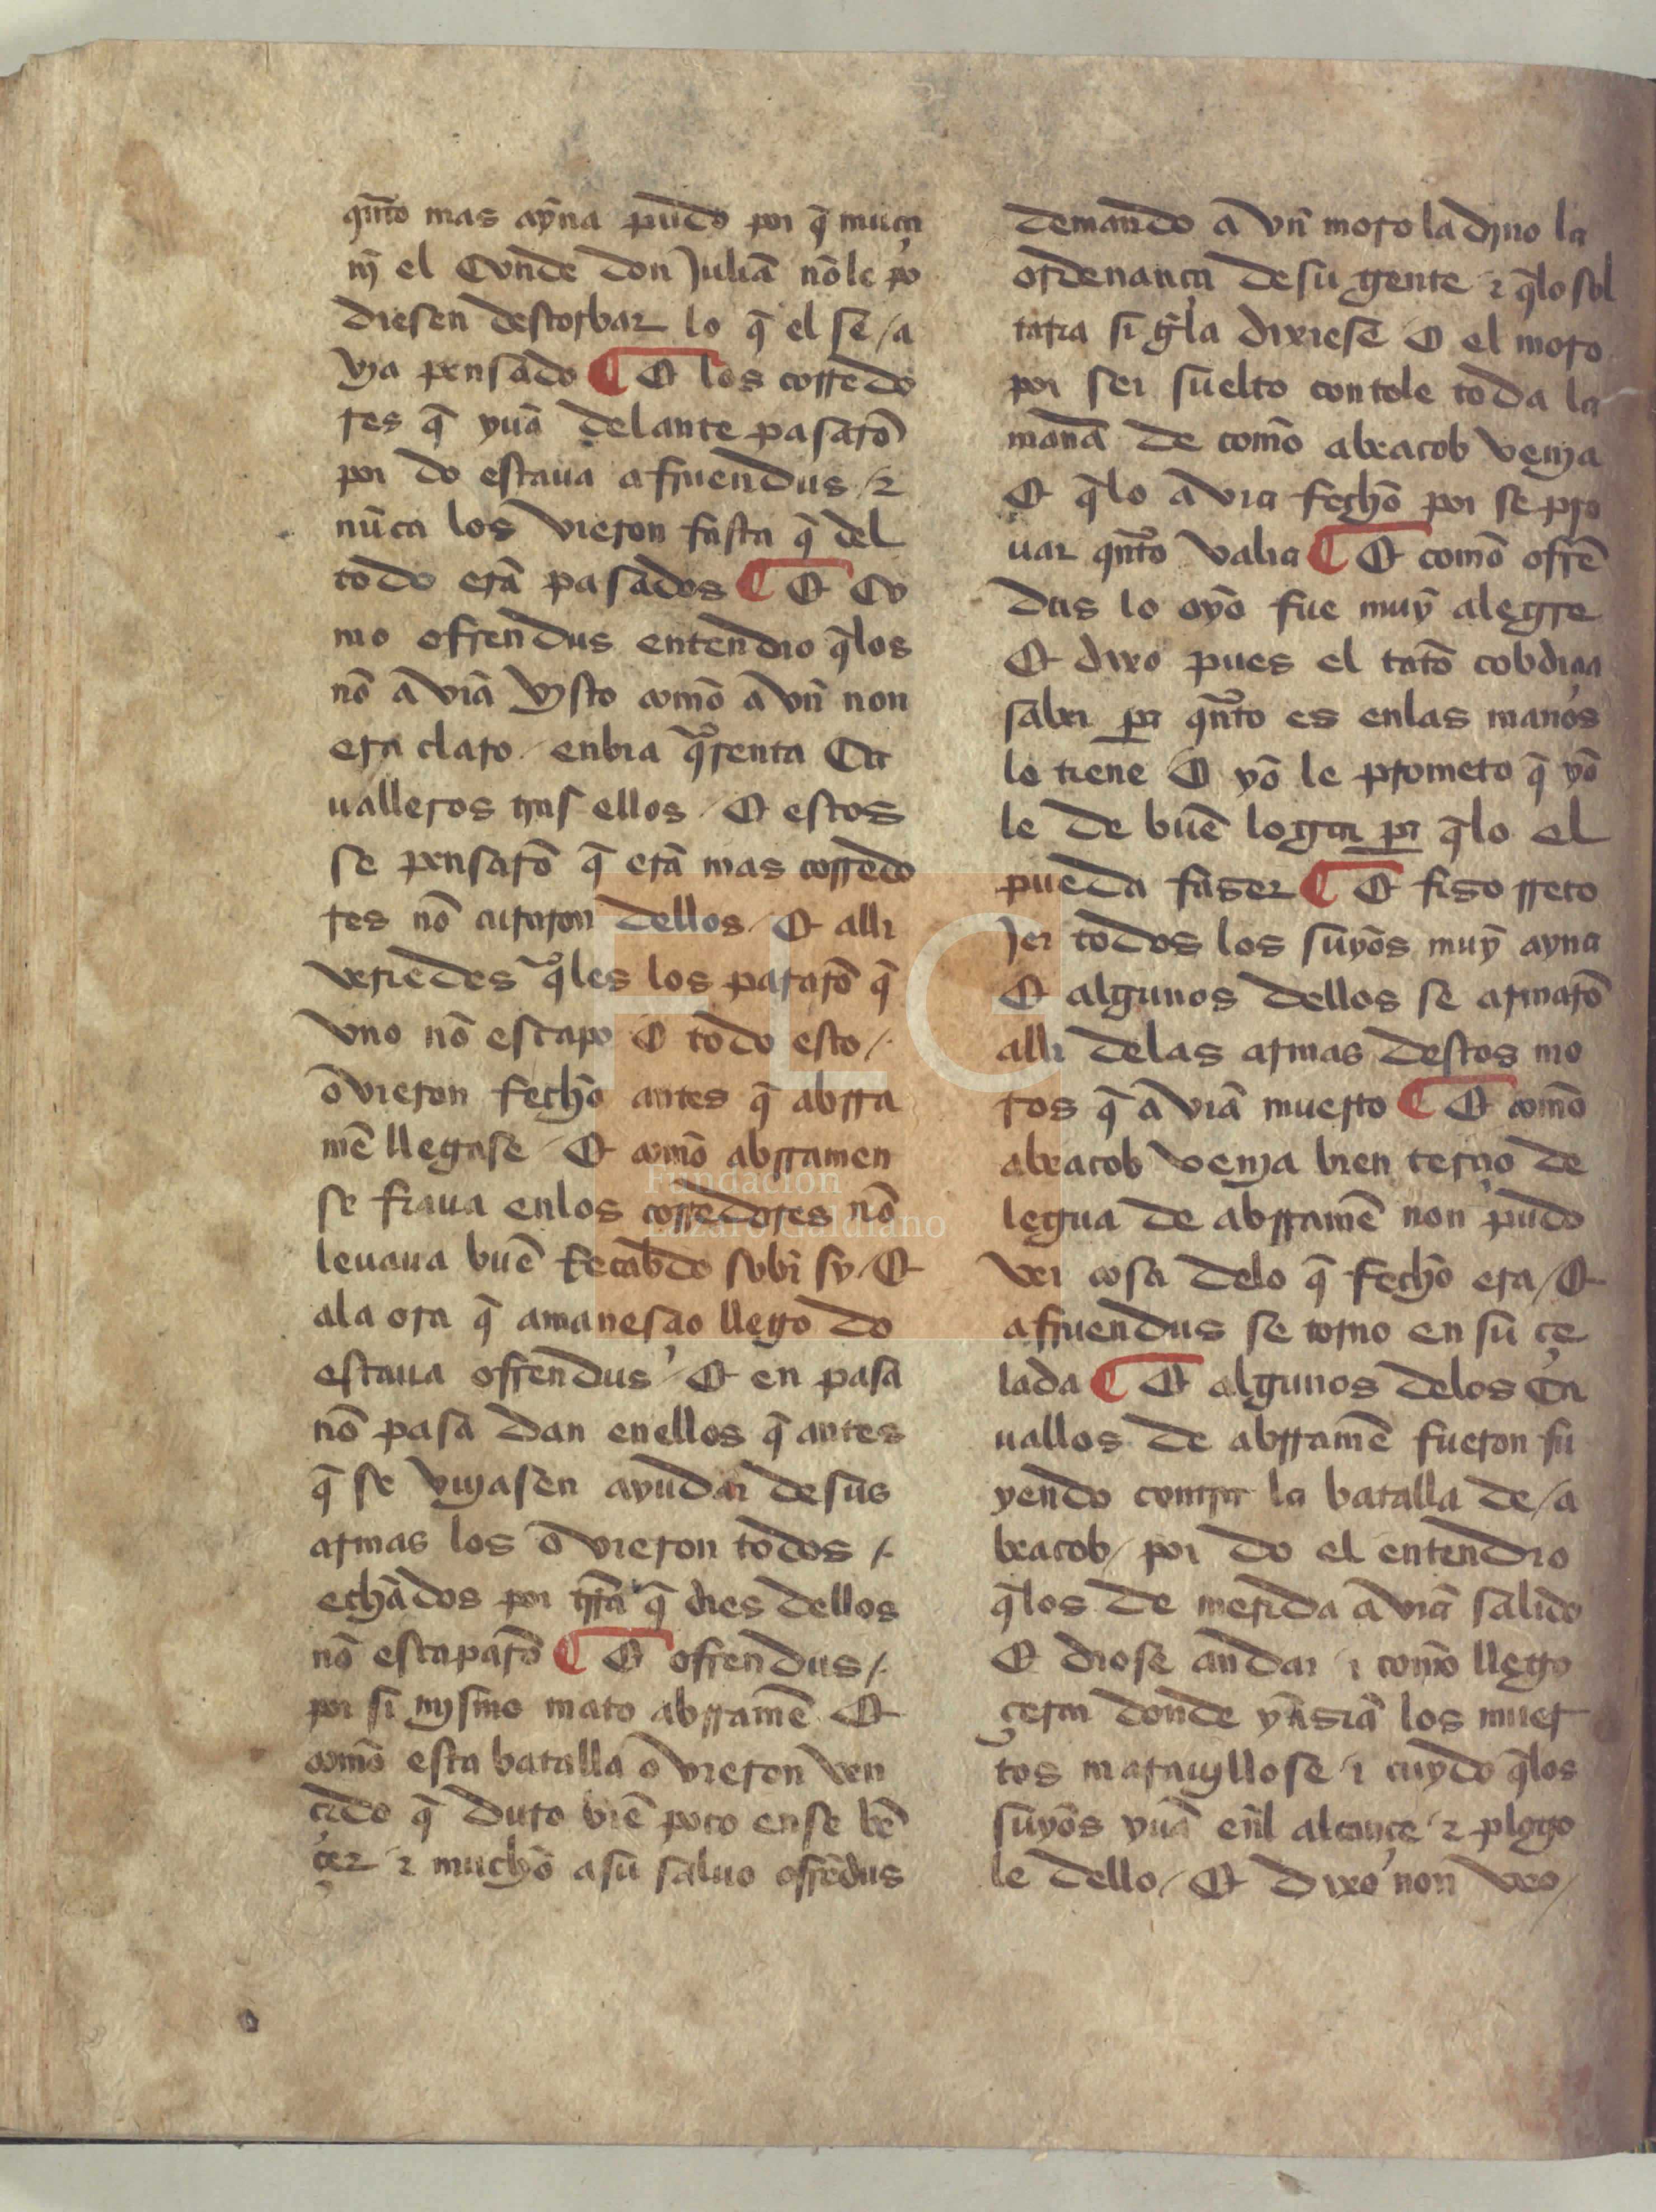 qñto mas ayña pudo por q̃ muça
nĩ el Conde don Juliã nõ le po
diesen destorbar lo q̃ el se / a
via pensado ¶ Et los corredo
res q̃ yuã delante pasarõ
por do estaua afruendus / τ
nũca los vieron fasta q̃ del
todo erã pasados ¶ Et Co
mo ofrrendus entendio q̃los
nõ a viã visto comõ a vñ non
era claro / enbia qͣrenta Ca
ualleros tras ellos / Et estos
se pensarõ q̃ erã mas corredo
res nõ curaron dellos / Et alli
veriedes qͣles los pararõ q̃
vno nõ escapo E todo esto /.
õvieron fechõ antes q̃ abrra
mẽ llegase / Et comõ abrramen
se fiaua enlos corredores nõ
leuaua buẽ recabdo sobr̃ sy / Et
ala ora q̃ amanesçio llego do
estaua ofrrendus / Et en pasa
nõ pasa dan enellos q̃ antes
q̃ se viyasen ayudar de sus
armas los o vieron todos /.
echãdos por trr̃a q̃ dies dellos
nõ escaparõ ¶ Et ofrrendus /.
por si mjsmo mato abrramẽ Et
comõ esta batalla o vieron ven
çido q̃ duro biẽ poco en se vẽ
çer τ muchõ a su saluo ofrrẽdus
demando a vñ moro ladino la
ordenança de su gente τ q̃lo sol
taria si gͤla dixiese E el moro
por ser suelto contole toda la
manã de comõ abeacob venja
Et q̃lo a via fechõ por se pro
uar qñto valia ¶ Et comõ ofrrẽ
dus lo oyõ fue muy alegre
Et dixo pues el tãtõ cobdiçia
saber pa qñto es enlas manos
lo tiene E yõ le prometo q̃ yõ
le de buẽ logar pa q̃lo el
pueda faser ¶ Et fiso rreco
jer todos los suyõs muy ayna
Et algunos dellos se armarõ
alli delas armas destos mo
ros q̃ a viã muerto ¶ Et comõ
abeacob venja bien terçio de
legua de abrramẽ non pudo
ver cosa delo q̃ fechõ era / Et
afruendus se torno en su çe
lada ¶ Et algunos delos Ca
uallos de abrramẽ fueron fu
yendo contra la batalla de / a
beacob / por do el entendio
q̃los de merida a viã salido
Et diose andar τ comõ llego
çerca donde yasiã los muer
tos marauyllose τ cuydo q̃los
suyõs yuã eñl alcançe τ plogo
le dello / Et dixo non veo /